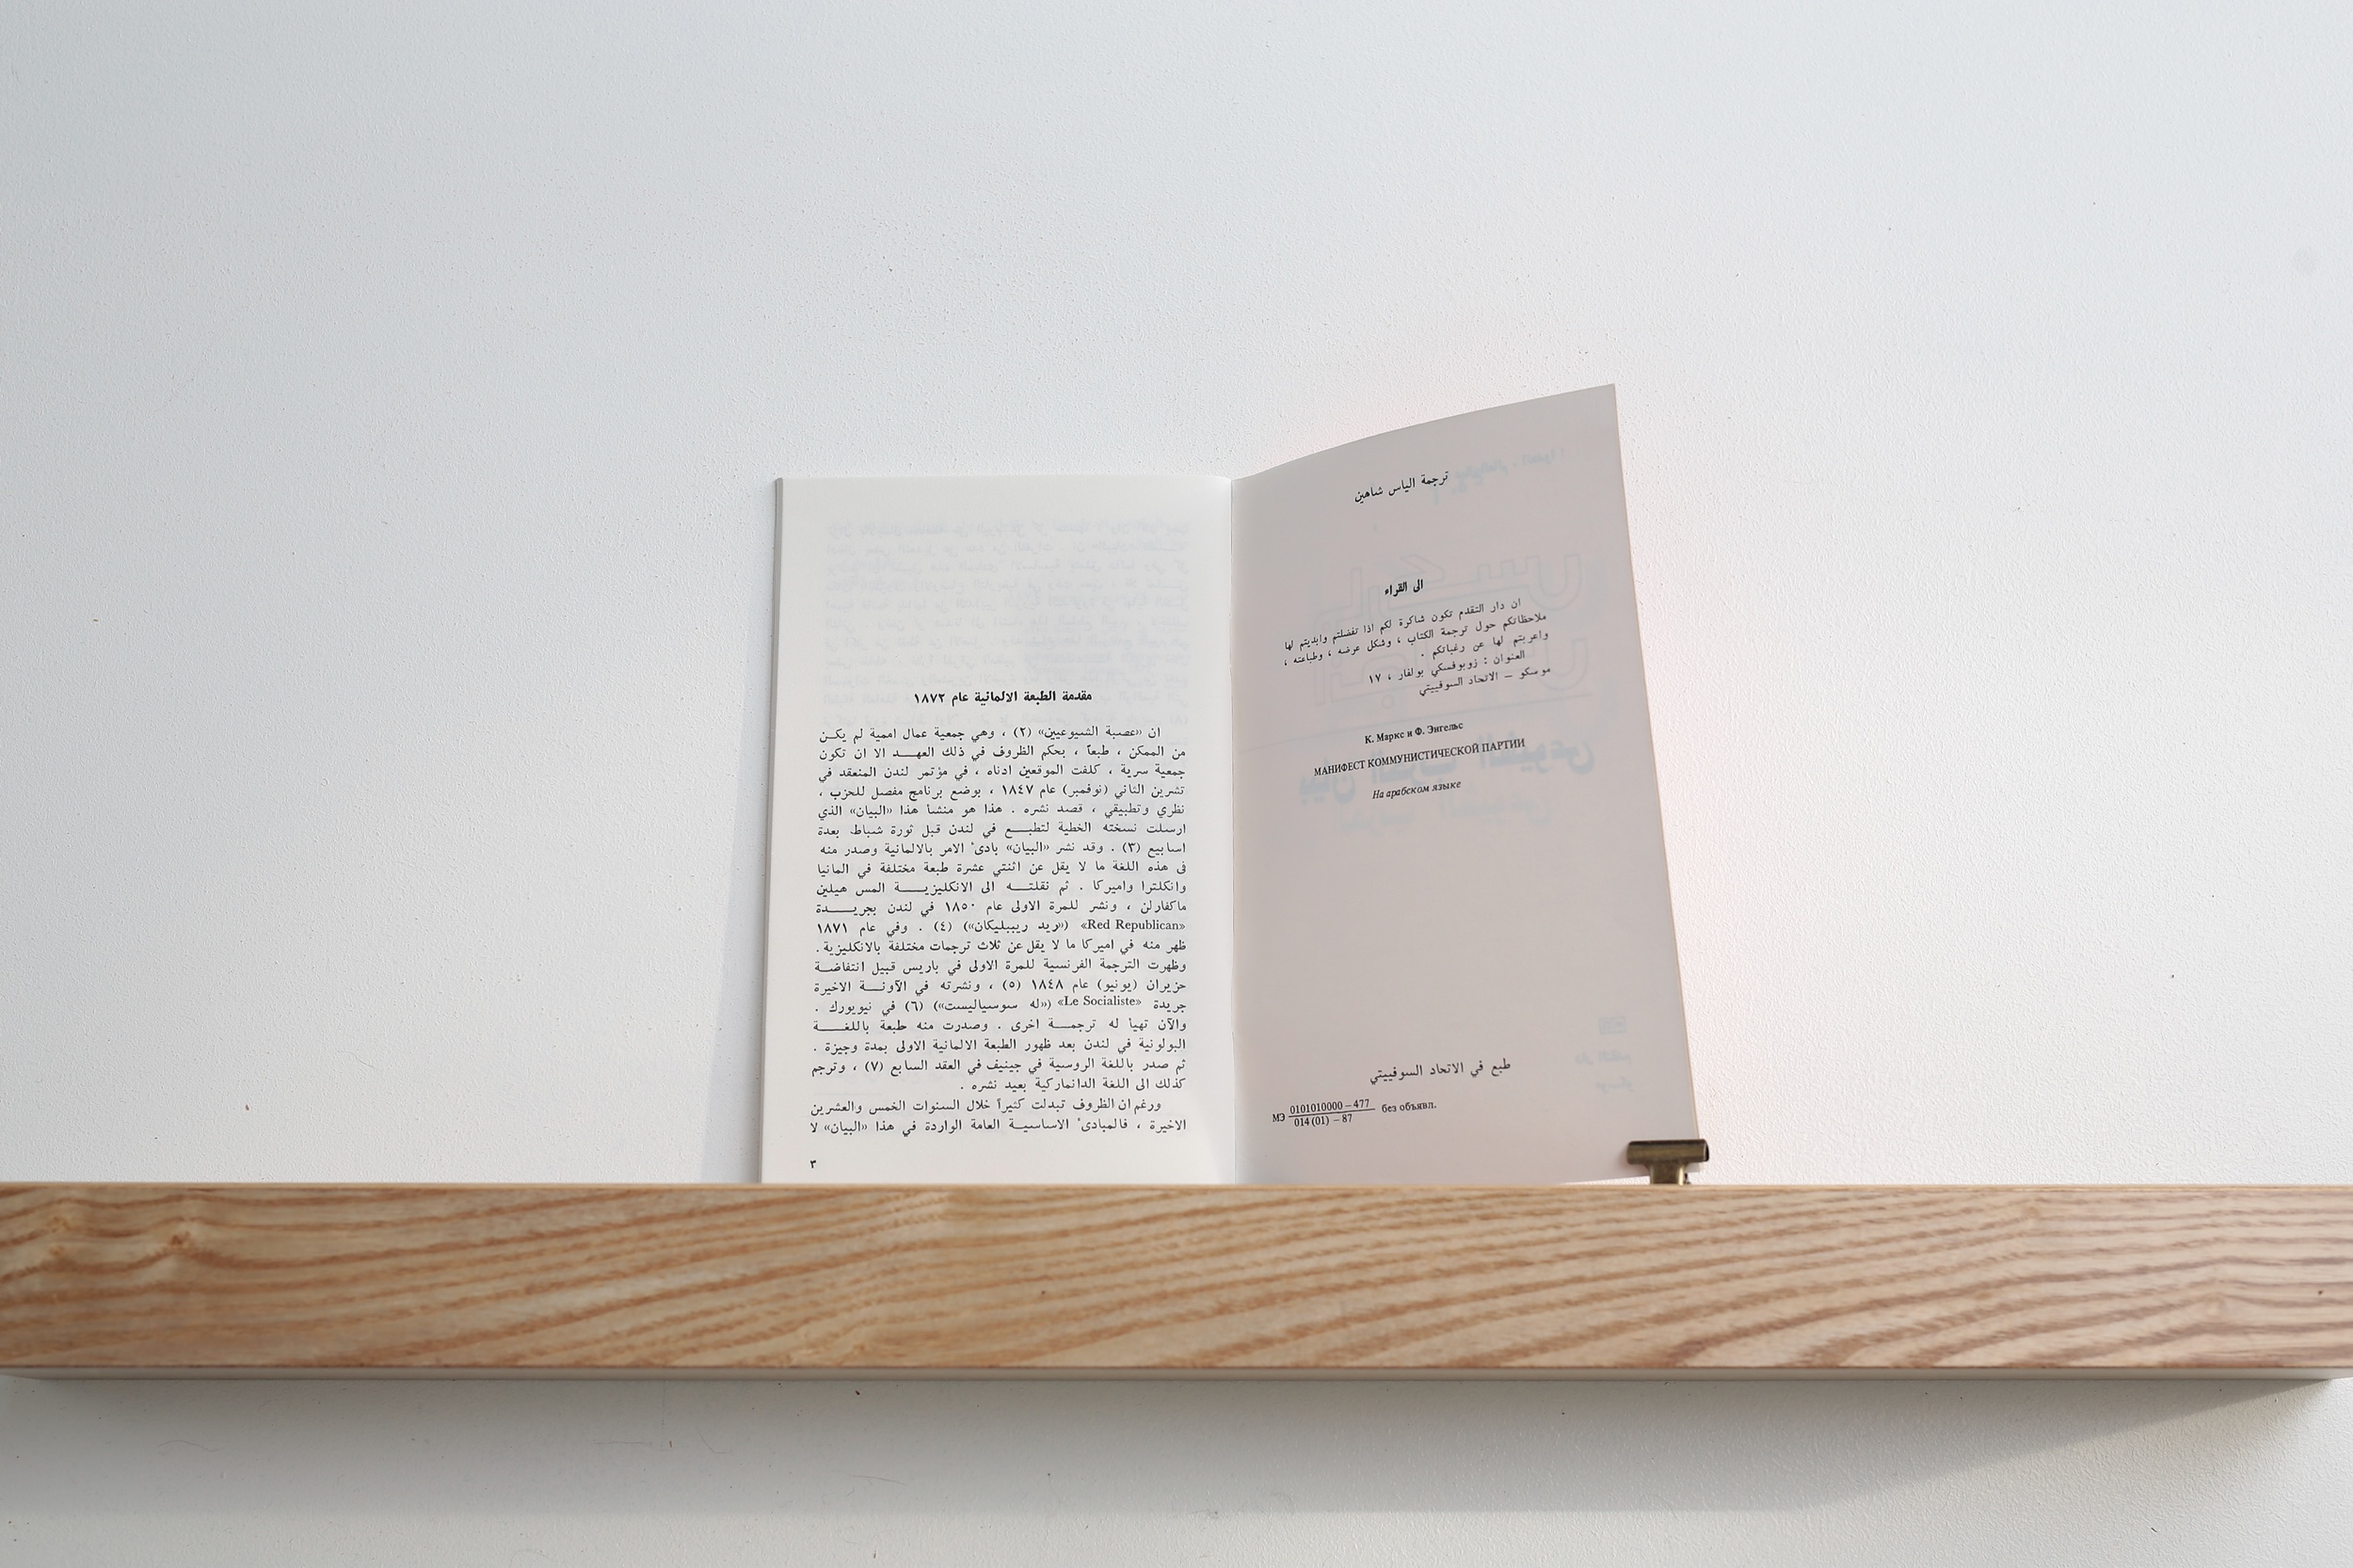 ترجمة الياس شاهين
الى القراء
ان دار التقدم تكون شاكرة لكم اذا تفضلتم وابديتم لها
ملاحظاتكم حول ترجمة الكتاب ، وشكل عرضه ، وطباعته ،
واعربتم لها عن رغباتكم .
العنوان : زوبوفسكي بولفار ، ١٧
موسكو – الاتحاد السوفييتي
К. Маркс и Ф. Энгельс
МАНИФЕСТ КОММУНИСТИЧЕСКОЙ ПАРТИИ
На арабском языке
طبع في الاتحاد السوفييتي
МЭ 0101010000 – 477 без объявл.
014 (01) – 87
مقدمة الطبعة الالمانية عام ١٨٧٢
ان «عصبة الشيوعيين» (٢) ، وهي جمعية عمال اممية لم يكـن
من الممكن ، طبعاً ، بحكم الظروف في ذلك العهـــد الا ان تكون
جمعية سرية ، كلفت الموقعين ادناه ، في مؤتمر لندن المنعقد في
تشرين الثاني (نوفمبر) عام ١٨٤٧ ، بوضع برنامج مفصل للحزب ،
نظري وتطبيقي ، قصد نشره . هذا هو منشأ هذا «البيان» الذي
ارسلت نسخته الخطية لتطبـــع في لندن قبل ثورة شباط بعدة
اسابيع (٣) . وقد نشر «البيان» بادىء الامر بالالمانية وصدر منه
في هذه اللغة ما لا يقل عن اثنتي عشرة طبعة مختلفة في المانيا
وانكلترا واميركا . ثم نقلتـــه الى الانكليزيـــــة المس هيلين
ماكفارلن ، ونشر للمرة الاولى عام ١٨٥٠ في لندن بجريـــــدة
«Red Republican» («ريد ريببليكان») (٤) . وفي عام ١٨٧١
ظهر منه في اميركا ما لا يقل عن ثلاث ترجمات مختلفة بالانكليزية .
وظهرت الترجمة الفرنسية للمرة الاولى في باريس قبيل انتفاضـة
حزيران (يونيو) عام ١٨٤٨ (٥) ، ونشرته في الآونـــة الاخيرة
جريدة «Le Socialiste» («له سوسياليست») (٦) في نيويورك .
والآن تهيأ له ترجمـــة اخرى . وصدرت منه طبعة باللغـــــة
البولونية في لندن بعد ظهور الطبعة الالمانية الاولى بمدة وجيزة .
ثم صدر باللغة الروسية في جينيف في العقد السابع (٧) ، وترجم
كذلك الى اللغة الدانماركية بعيد نشره .
ورغم ان الظروف تبدلت كثيراً خلال السنوات الخمس والعشرين
الاخيرة ، فالمبادىء الاساسيـــة العامة الواردة في هذا «البيان» لا
٣